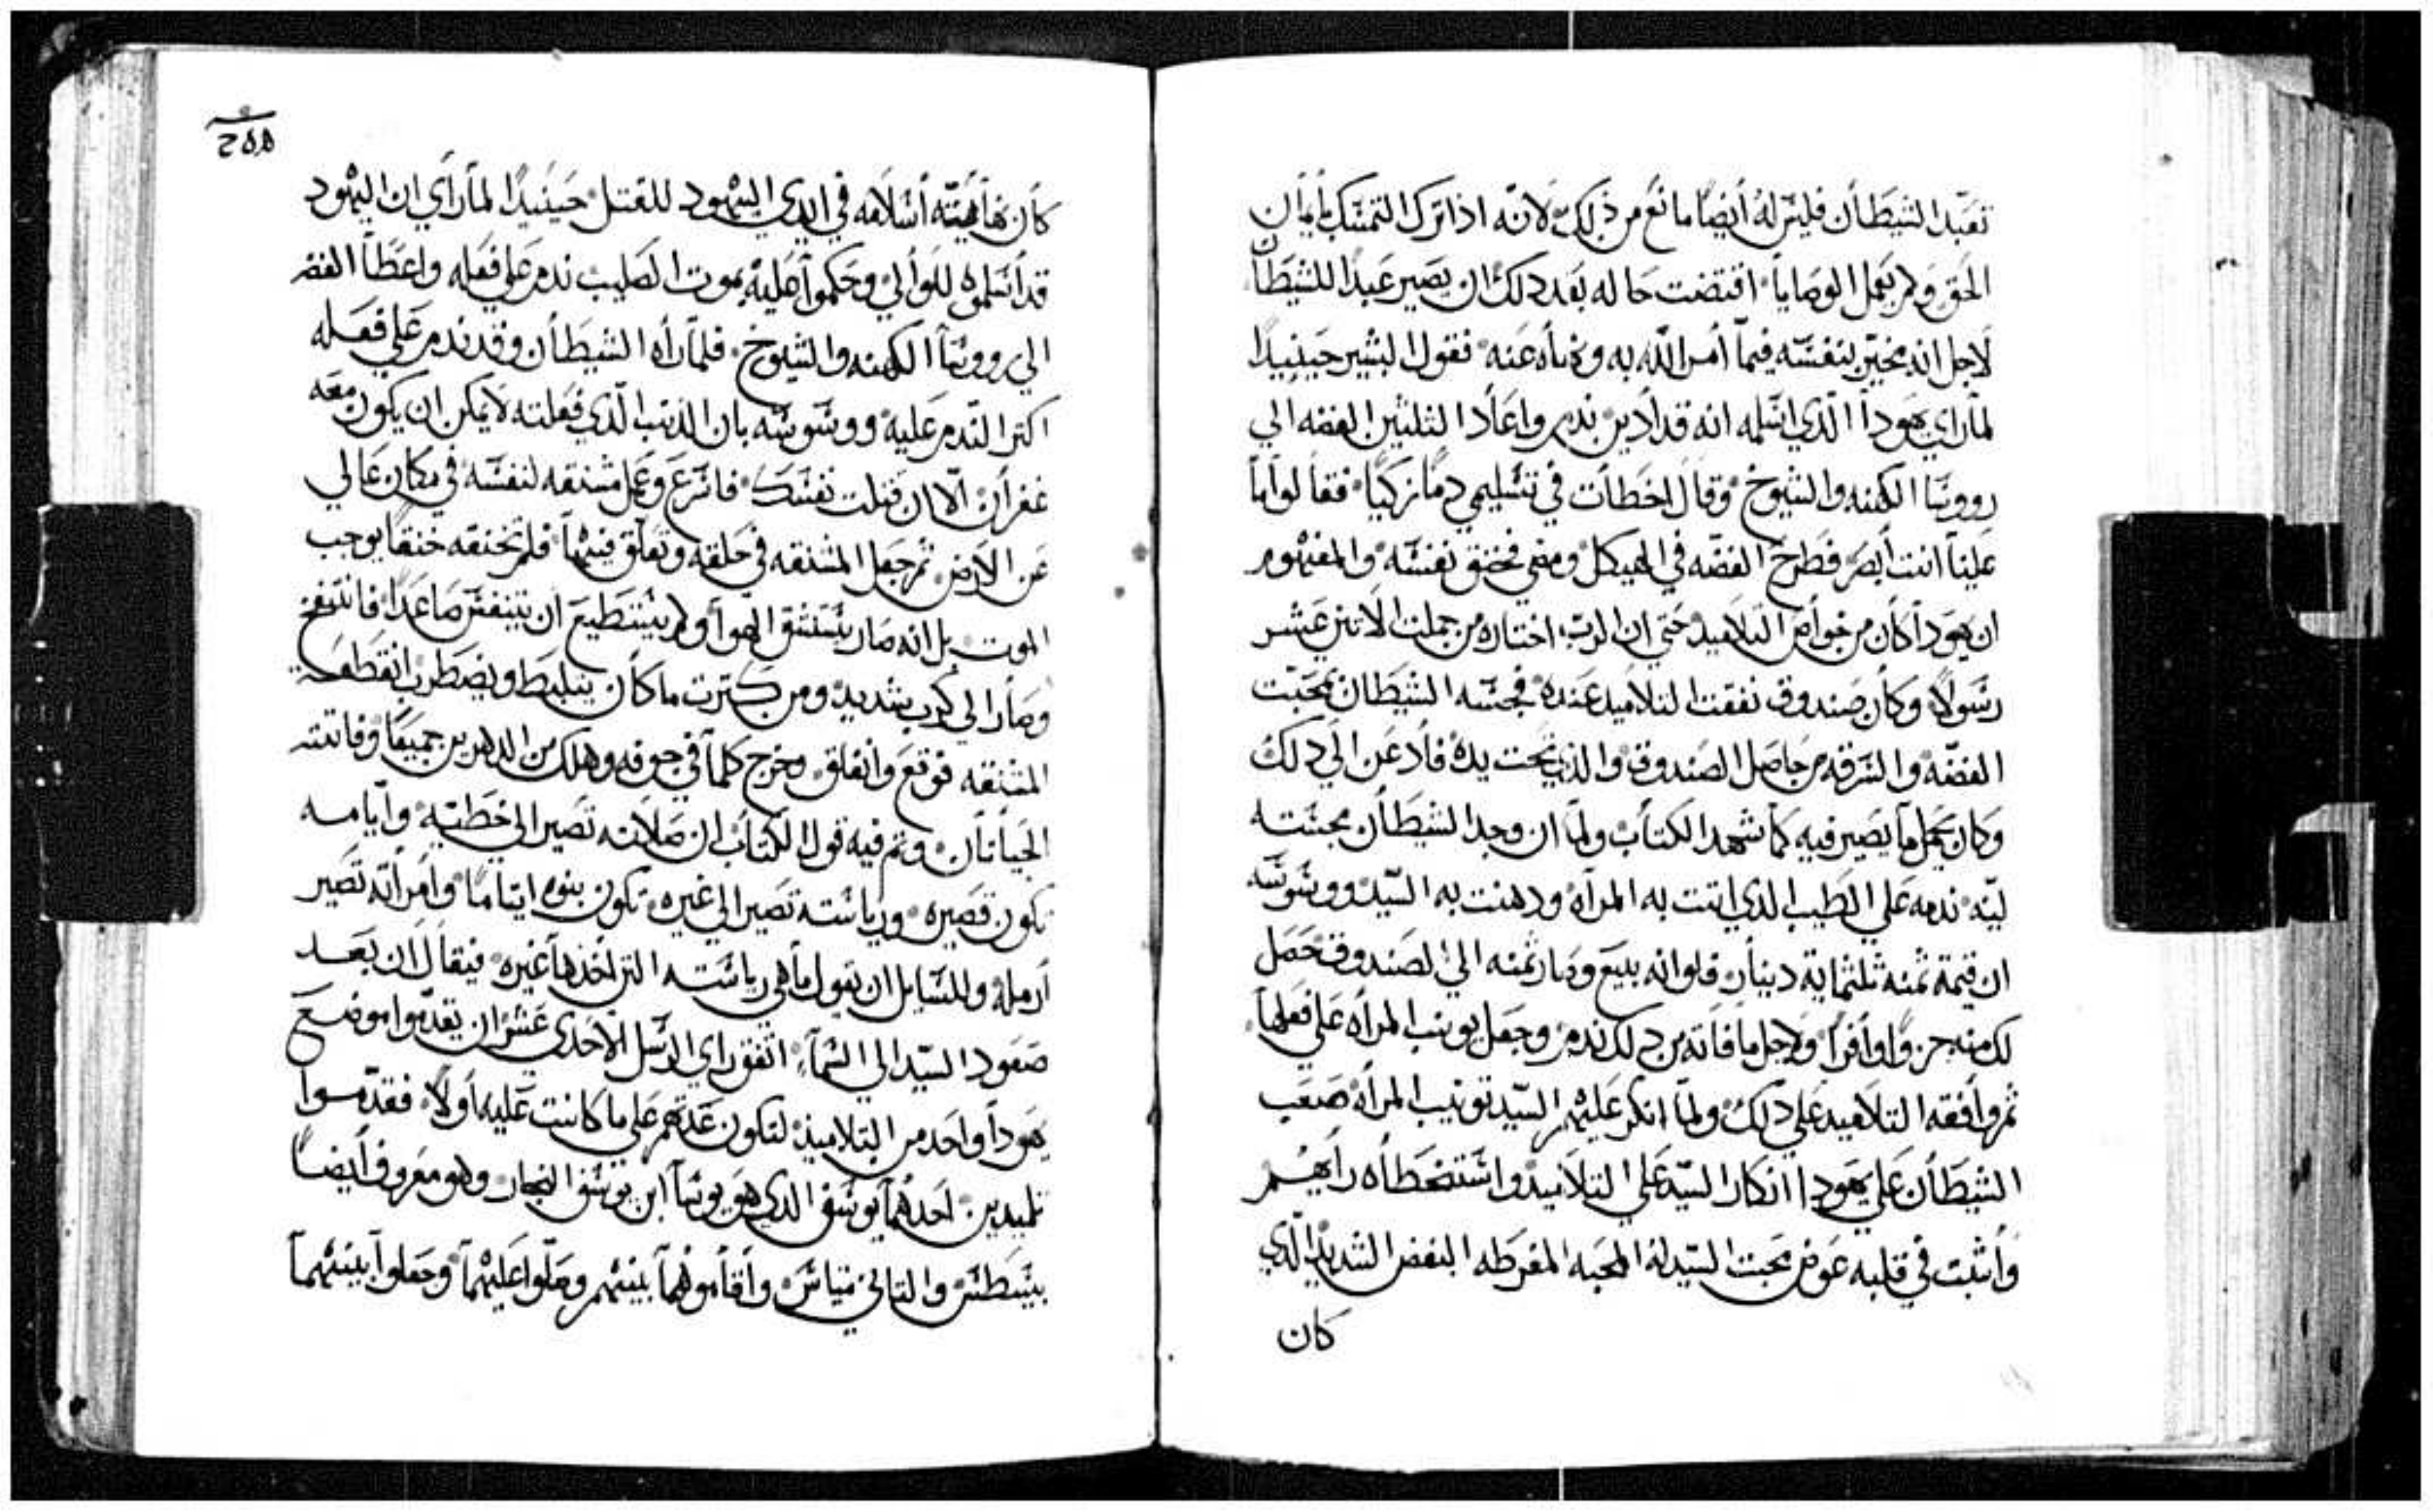 تعبد الشيطان فليس له أيضا مانع من ذلك لانه اذا ترك التمسك بايمان
الحق ولم يعمل الوصايا اقتضت حاله بعد دلك ان يصير عبدا للشيطان
لاجل انه مخير بنفسه فيما أمر الله به ونهاه عنه فقول البشير حينيدا
لما راي يهودا الدي اسلمه انه قد أدين ندم واعاد الثلثين الفضه الي
رووسا الكهنه والشيوخ وقال اخطأت في تسليمي دما زكيا فقالوا ما
علينا انت أبصر فطرح الفضه في الهيكل ومضي فخنق نفسه والمفهوم
ان يهودا كان من خواص التلاميد حتي ان الرب اختاره من جملت الاتني عشر
رسولا وكان صندوق نفقت التلاميد عنده فجسه الشيطان بمحبت
الفضه والسرقه من حاصل الصندوق والذي تحت يده فادعن الي دلك
وكان يحمل ما يصير فيه كما شهد الكتاب ولما ان وجد الشيطان مجسته
لينه ندمه علي الطيب الدي اتت به المرآه ودهنت به السيد ووسوسه
ان قيمة ثمنه ثلثماية دينار فلو انه بيع وصار ثمنه الي الصندوق حصل
لك منه جزوا وافرا ولاجل ما فاته من دلك ندم وجعل يونب المرآه علي فعلها
ثم وافقه التلاميد علي دلك ولما انكر عليهم السيد تونيب المرآه صعب
الشيطان علي يهودا انكار السيد علي التلاميد واستخطأه رايهم
وأثبت في قلبه عوض محبت السيد له المحبه المفرطه البغض الشديد الدي
كان
كان نهايته أسلامه في ايدي اليهود للقتل حينيدا لما رأي ان اليهود
قد أسلموه للوالي وحكموا عليه بموت الصليب ندم علي فعله واعطا الفضه
الي رووسا الكهنه والشيوخ فلما رأه الشيطان وقد ندم علي فعله
اكتر الندم عليه ووسوسه بان الدنب الدي فعلته لا يمكن ان يكون معه
غفران الا ان قتلت نفسك فاسرع وعمل مشنقه لنفسه في مكان عالي
عن الارض ثم جعل المشنقه في حلقه وتعلق فيها فلم تخنقه خنقا يوجب
الموت بل انه صار يستنشق الهوا ولم يستطيع ان يتنفس صاعدا فانتفخ
وصار الي كرب شديد ومن كترت ما كان يتلبط ويضطرب انقطعت
المشنقه فوقع وانفلق وخرج كلما في جوفه وهلك من الدهرين جميعا وفاتته
الحياتان وتم فيه قول الكتاب ان صلاته تصير الي خطيه وآيامه
تكون قصيره ورياسته تصير الي غيره تكون بنوه ايتاما وامراته تصير
أرمله وللسايل ان يقول ما هي رياسته التي اخدها غيره فيقال ان بعد
صعود السيد الي السما اتفق راي الرسل الاحدي عشر ان يقدموا موضع
يهودا واحد من التلاميذ لتكون عدتهم علي ما كانت عليه أولا فقدموا
تلميدين احدهما يوسف الدي هو يوسا ابن يوسف النجار وهو معروف أيضا
ببسطس والتاني متياس وأقاموهما بينهم وصلوا عليهما وجعلوا بينهما